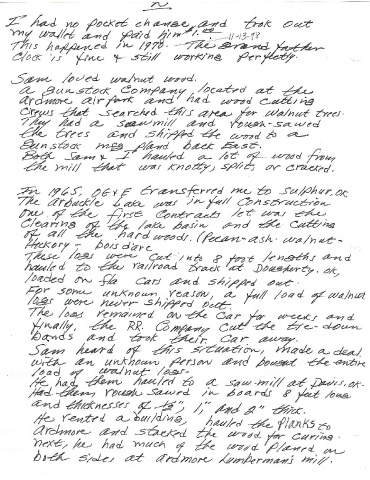 I had no pocket change, and took out
my wallet and paid him $1.00. 11-13-98
This happened in 1970. The Grand father
Clock is fine & still working perfectly.
Sam loved walnut wood.
A Gunstock Company located at the
Ardmore airpark and had wood cutting
Crews that searched this area for walnut trees.
They had a sawmill and rough-sawed
the trees and shipped the wood to a
Gunstock mfg plant back East.
Both Sam & I hauled a lot of wood from
the mill that was knotty, split, or cracked.
In 1965, OG&E transferred me to sulphur, OK
The Arbuckle Lake was in full Construction
One of the first Contracts let was the
Clearing of the lake basin and the cutting
of all the hard woods. (Pecan-ash-walnut-
Hickory - bois darc
These logs were cut into 8 foot lengths and
hauled to the railroad track at Dougherty, OK,
loaded on fla cars and shipped out.
For some unknown reason, a full load of walnut
logs were never shipped out.
The logs remained on the car for weeks and
finally, the RR. Company cut the tie-down
bands and took their car away.
Sam heard of this situation, made a deal
with an unknown person and bought the entire
load of walnut logs-
He had them hauled to a sawmill at Davis, OK-
Had them rough sawed in boards 8 feet long
and thicknesses of 1/2", 1," and 2" thick.
He rented a building, hauled the planks to
Ardmore and stacked the wood for curing.
next, he had much of the wood planed on
both sides at Ardmore Lumberman's mill.